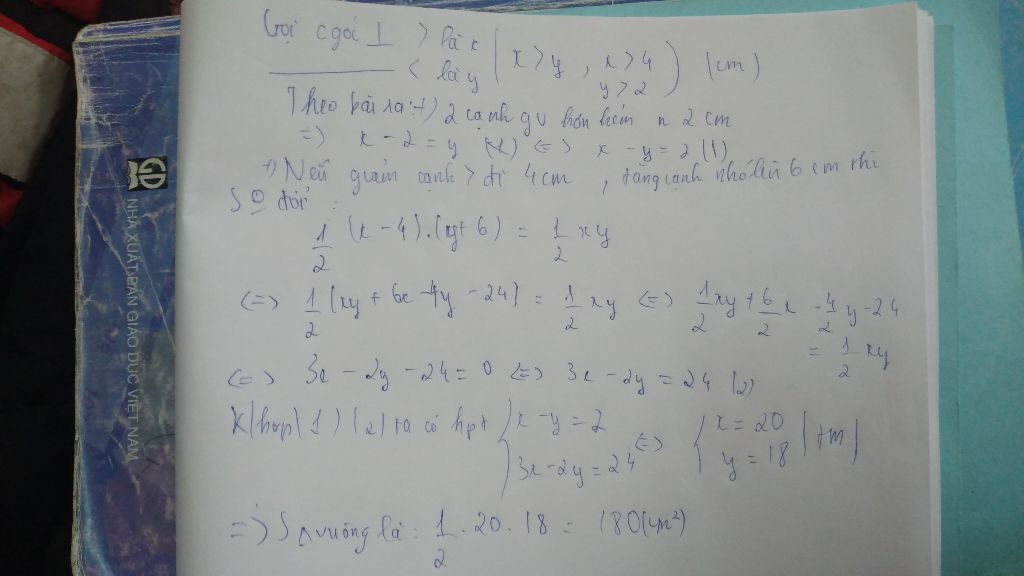 Gọi c góc ⊥ > là x
< là y ( x > y , x > 4
y > 2 ) (cm)
Theo bài ra: +) 2 cạnh gv hơn kém n 2 cm
=> x - 2 = y <=> x - y = 2 (1)
+) Nếu giảm cạnh > đi 4cm , tăng cạnh nhỏ lên 6 cm thì
S O đổi :
1/2 (x - 4).(y + 6) = 1/2 xy
<=> 1/2 (xy + 6x - 4y - 24) = 1/2 xy <=> 1/2 xy + 6/2 x - 4/2 y - 24
= 1/2 xy
<=> 3x - 2y - 24 = 0 <=> 3x - 2y = 24 (2)
K/hợp (1) (2) ta có hpt { x - y = 2
3x - 2y = 24 <=> { x = 20
y = 18 (tm)
=> S Δ vuông là : 1/2 . 20 . 18 = 180 (cm²)
GD
NHÀ XUẤT BẢN GIÁO DỤC VIỆT NAM